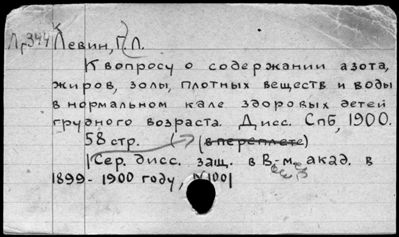 Лр344 Левин, П.Л.
К вопросу о содержании азота,
жиров, золы, плотных веществ и воды
в нормальном кале здоровых детей
грудного возраста. Дисс. Спб, 1900.
58 стр. (в переплете)
(Сер. дисс. защ. в В.-м. акад. в
1899-1900 году, №100)